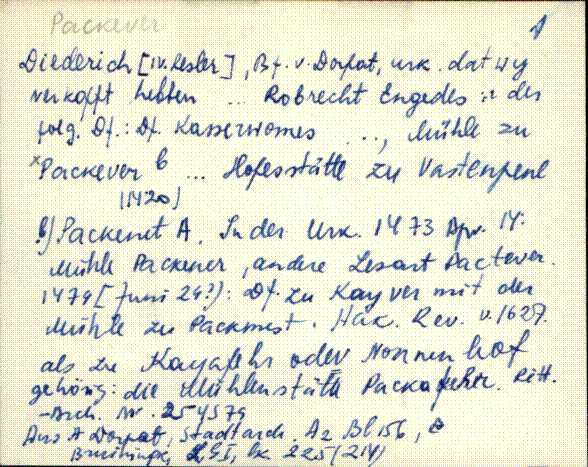 Packever
1
Diederich [IV. Resler], Bf. v. Dorpat, urk. dat wy
verkofft hebben ... Robrecht Engedes der
folg. Df.: Df. Kasserwomes ..., Mühle zu
x Packever b ... Hofesstätte zu Vastenpene
(1420)
b) Packenet A. In der Urk. 1473 Apr. 14.
Mühle Packener, andere Lesart Pactever.
1479 [Juni 24?]: Df. zu Kayver mit der
Mühle zu Packmest. Hak. Rev. v. 1627.
als zu Kayafehr oder Nonnenhof
gehörig: die Mühlenstätte Packafehr. Ritt.
-Arch. Nr.
Aus A Dorpat, Stadtarch. A2 Bl 156,
LGI, 225 (214)